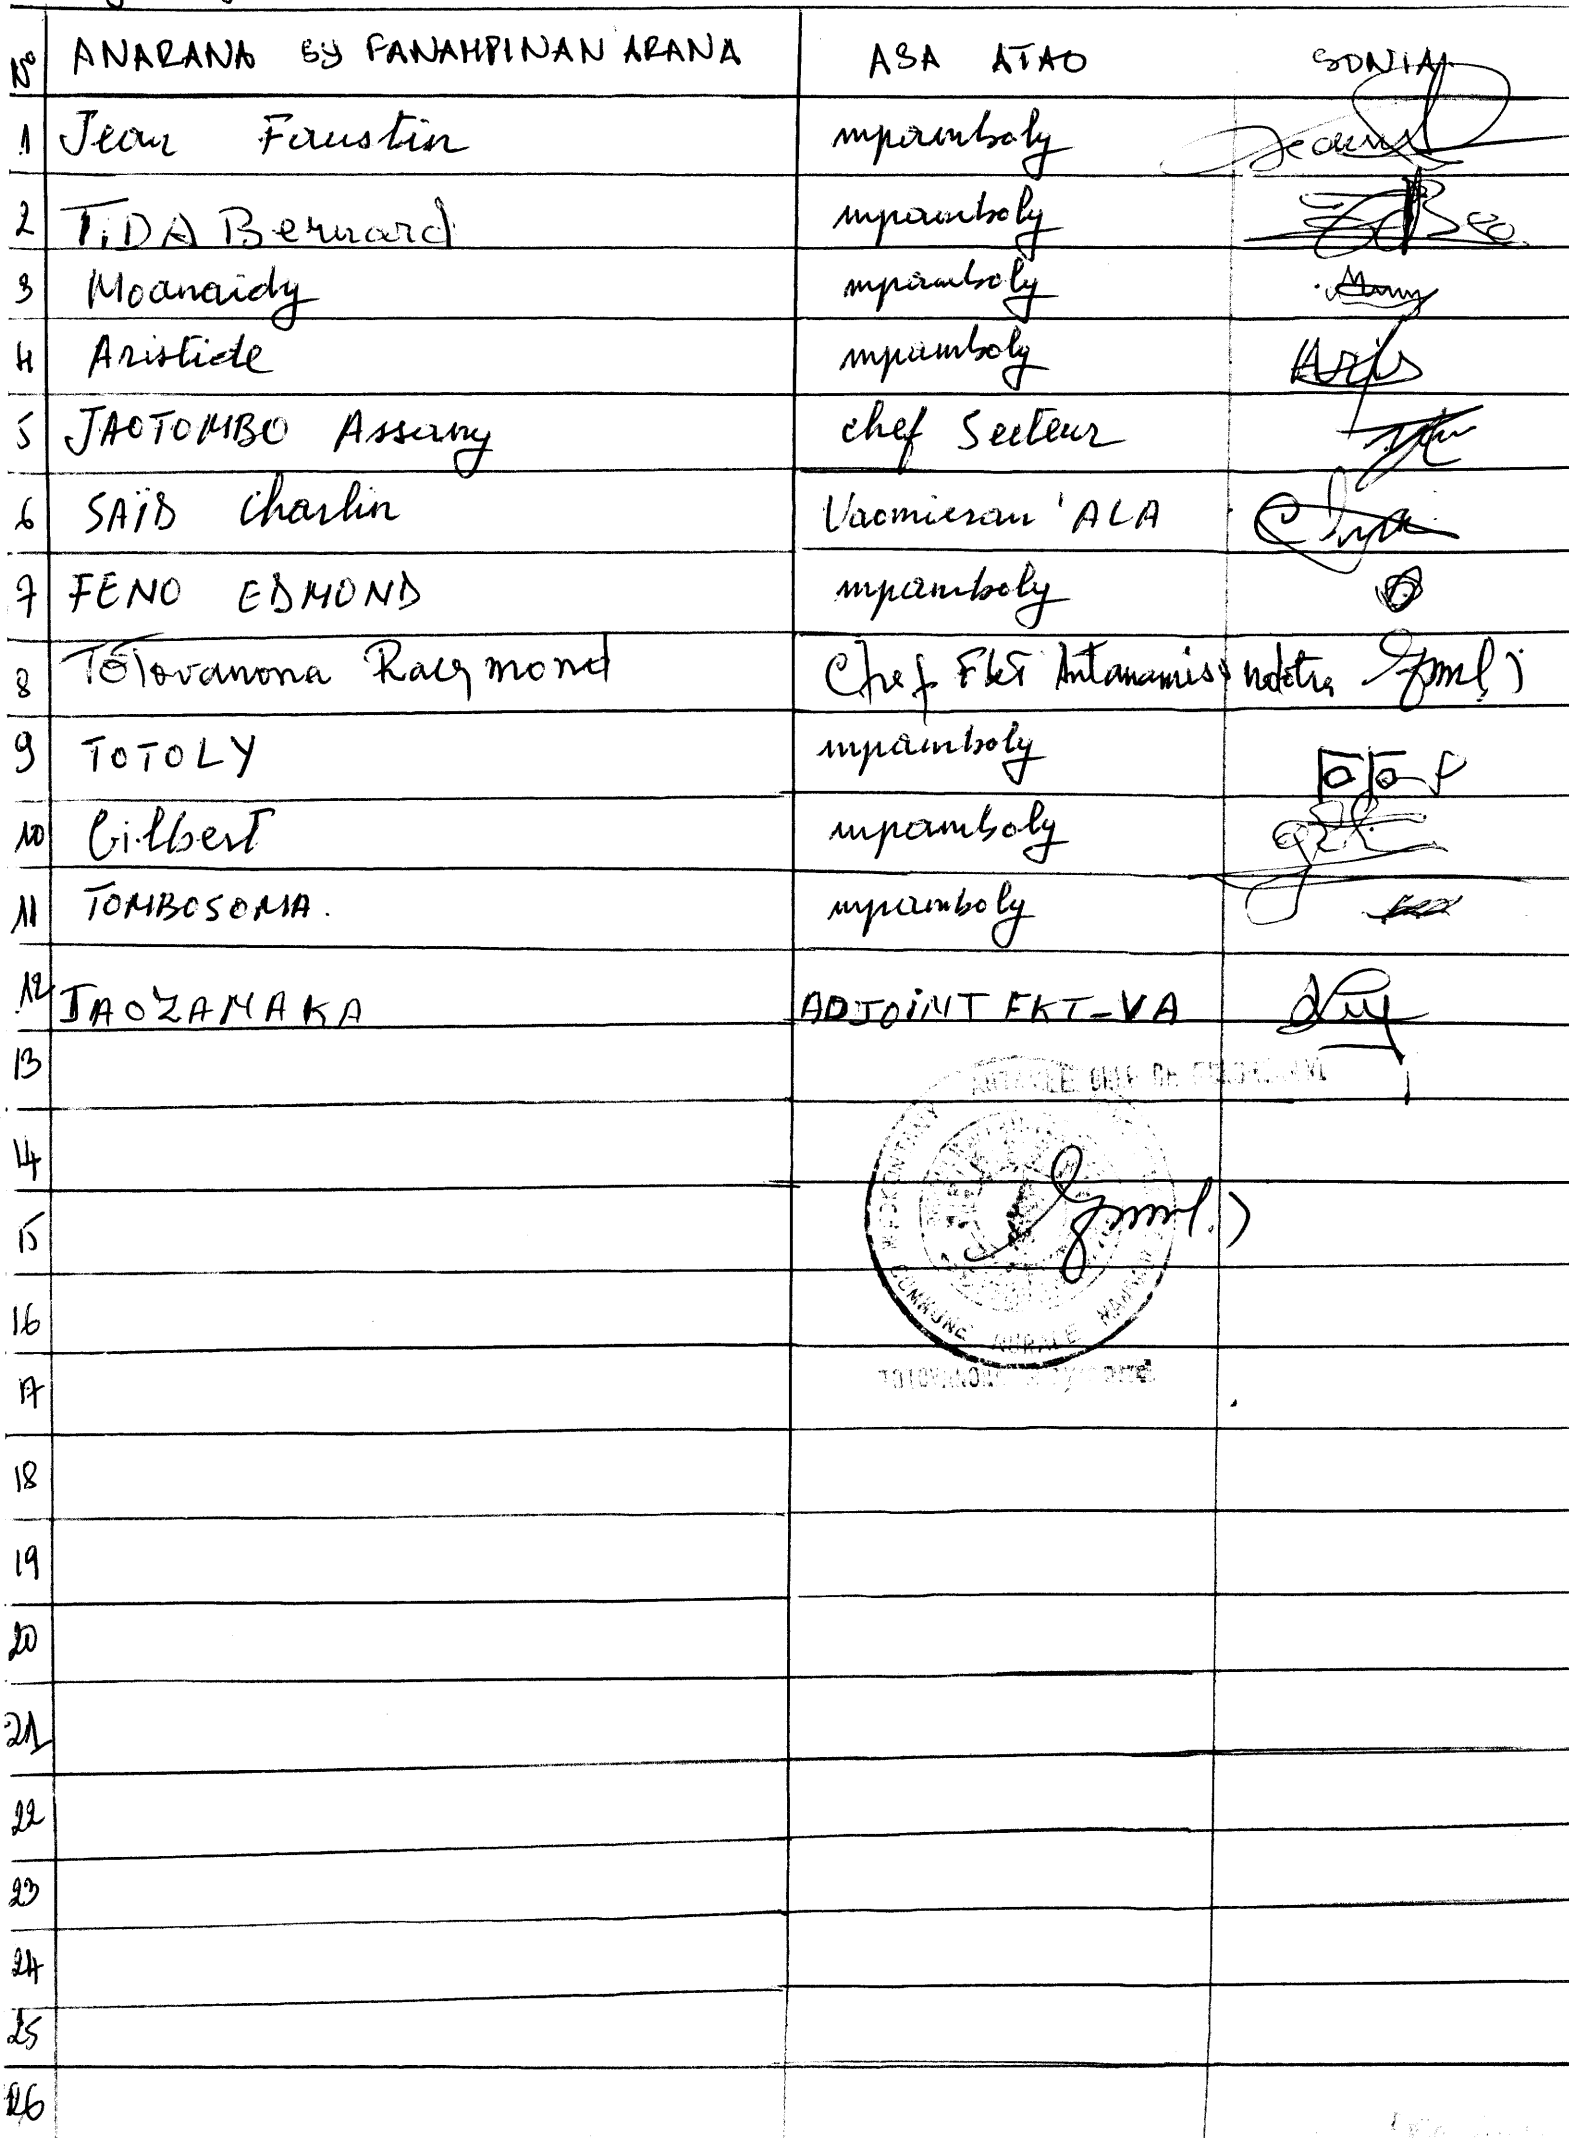 N° ANARANA sy FANAMPINAN'ARANA ASA ATAO SONIA
1 Jean Faustin mpamboly
2 TIDA Bernard mpamboly
3 Moanaidy mpamboly
4 Aristide mpamboly
5 JAOTOMBO Assany chef Secteur
6 SAÏD Charlin Vaomieran'ALA
7 FENO EDMOND mpamboly
8 Totovanona Raymond Chef Fkt
9 TOTOLY mpamboly
10 Gilbert mpamboly
11 TOMBOSOMA. mpamboly
12 JAOZAMAKA ADJOINT FKT-VA
13
14
15
16
17
18
19
20
21
22
23
24
25
26
COMMUNE RURALE